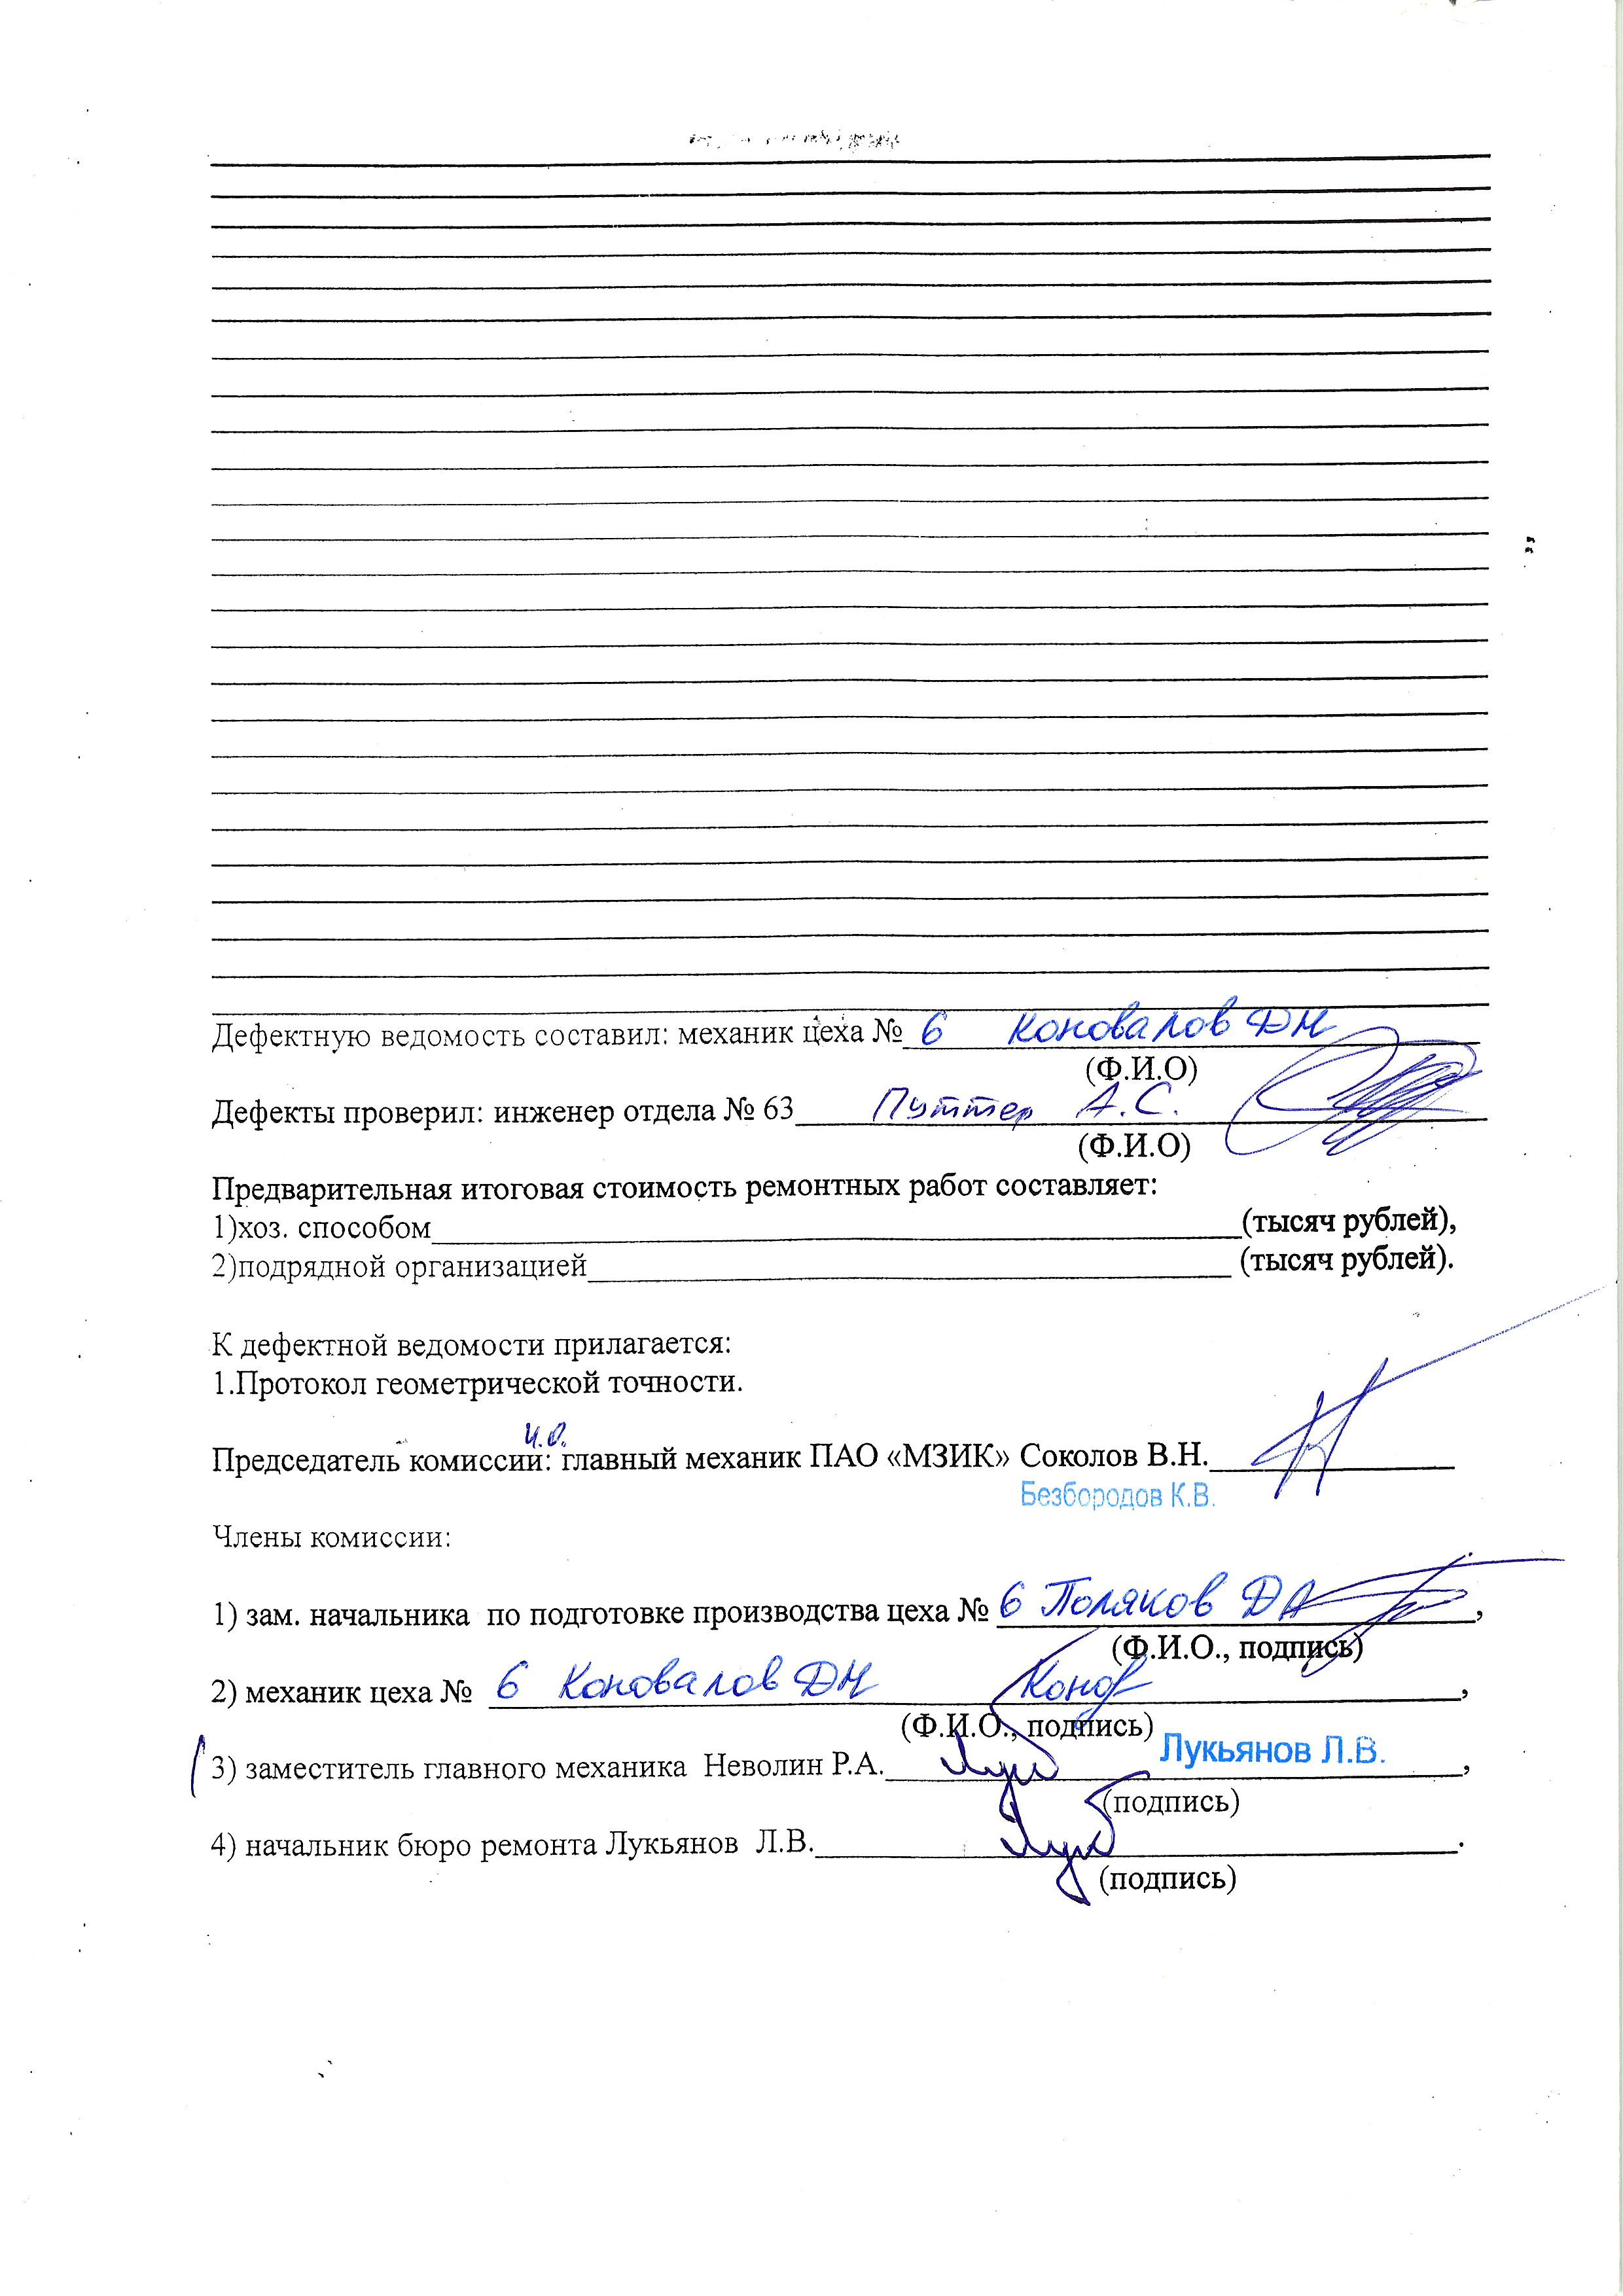 Дефектную ведомость составил: механик цеха № 6 Коновалов ДН
(Ф.И.О)
Дефекты проверил: инженер отдела № 63 Путтер А.С.
(Ф.И.О)
Предварительная итоговая стоимость ремонтных работ составляет:
1)хоз. способом (тысяч рублей),
2)подрядной организацией (тысяч рублей).
К дефектной ведомости прилагается:
1.Протокол геометрической точности.
И.О.
Председатель комиссии: главный механик ПАО «МЗИК» Соколов В.Н.
Безбородов К.В.
Члены комиссии:
1) зам. начальника по подготовке производства цеха № 6 Поляков ДА ,
(Ф.И.О., подпись)
2) механик цеха № 6 Коновалов ДН ,
(Ф.И.О., подпись)
3) заместитель главного механика Неволин Р.А. Лукьянов Л.В. ,
(подпись)
4) начальник бюро ремонта Лукьянов Л.В. .
(подпись)